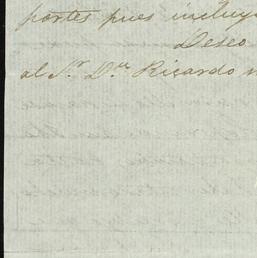 portes pues incluy
Deseo
al Sr. Dn. Ricardo